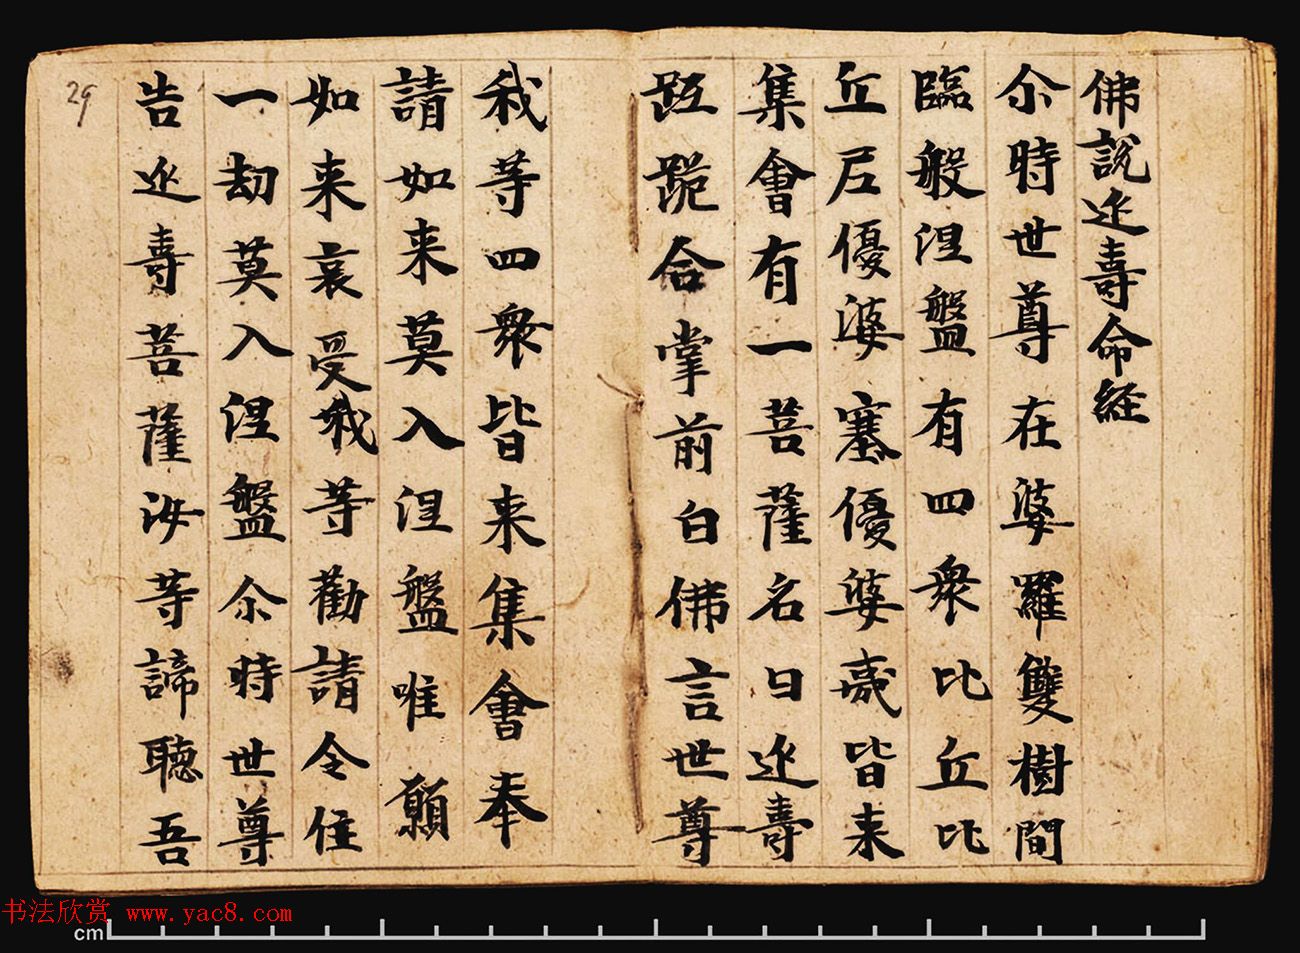 佛說延壽命経
尒時世尊在婆羅雙樹間
臨般涅盤有四衆比丘比
丘尼優婆塞優婆夷皆来
集會有一菩薩名曰延壽
跪合掌前白佛言世尊
我等四衆皆来集會奉
請如来莫入涅盤唯願
如来哀受我等勸請令住
一劫莫入涅盤尒時世尊
告延壽菩薩汝等諦聽吾
29
书法欣赏 www.yac8.com
cm